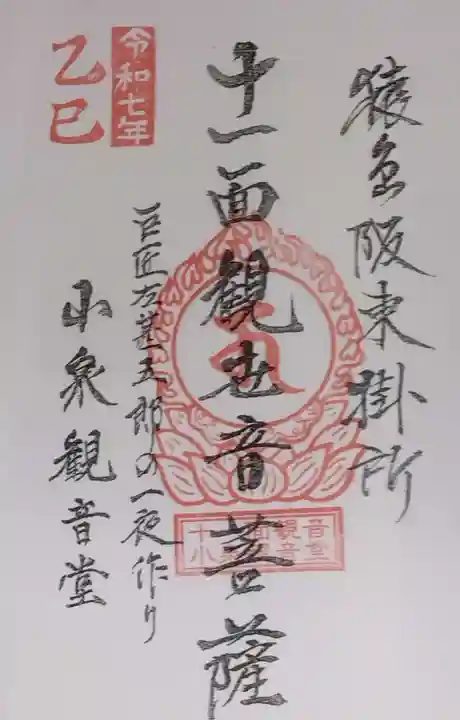 猿島阪東掛所
十一面観世音菩薩
巨匠左甚五郎の一夜作り
小泉観音堂
令和七年
乙巳
十一面観音
小泉観音堂